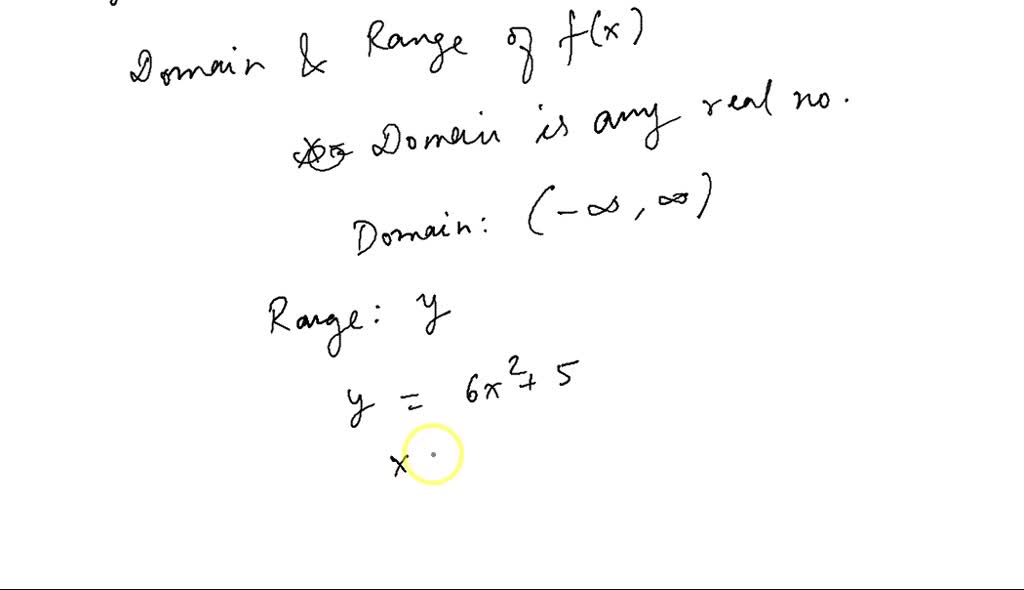 Domain & Range of f(x)
Domain is any real no.
Domain: (-∞, ∞)
Range: y
y = 6x² + 5
x